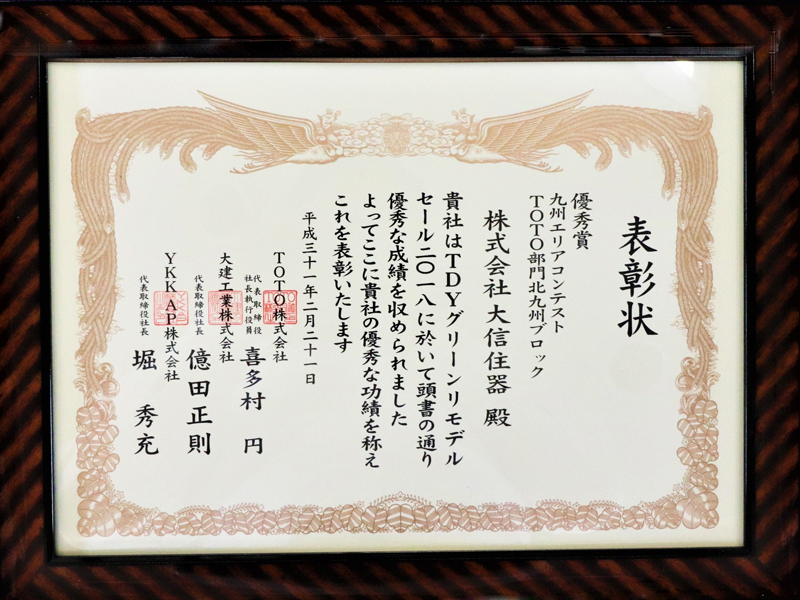 表彰状
優秀賞
九州エリアコンテスト
TOTO部門北九州ブロック
株式会社 大信住器 殿
貴社はTDYグリーンリモデル
セール二〇一八に於いて頭書の通り
優秀な成績を収められました
よってここに貴社の優秀な功績を称え
これを表彰いたします
平成三十一年二月二十一日
TOTO株式会社
代表取締役
社長執行役員
喜多村 円
大建工業株式会社
代表取締役社長
億田正則
YKK AP株式会社
代表取締役社長
堀 秀充